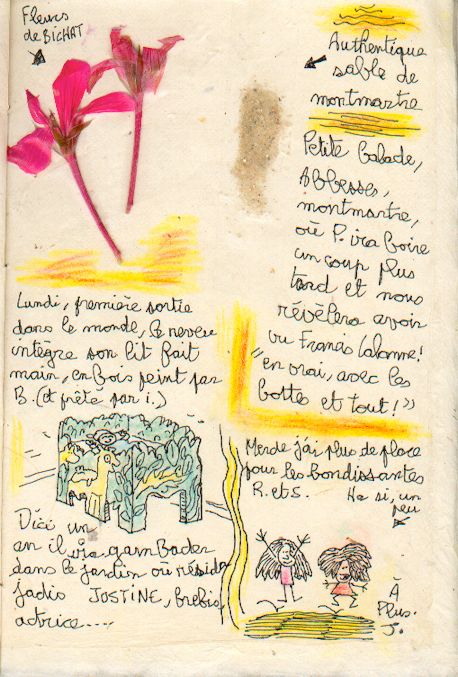 Fleurs
de BICHAT
Authentique
sable de
montmartre
Petite balade,
Abbesses,
montmartre,
où P. ira boire
un coup plus
tard et nous
révèlera avoir
vu Francis Lalanne!
"en vrai, avec les
bottes et tout!"
Lundi, première sortie
dans le monde, le neveu
intègre son lit fait
main, en bois peint par
B. (et prêté par i.)
D'ici un
an il ira gambader
dans le jardin où résida
jadis JOSTINE, brebis
actrice.....
Merde j'ai plus de place
pour les bondissantes
R. et S. Ha si, un
peu
À
Plus.
J.